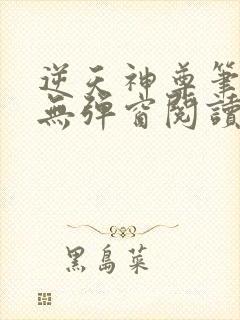 逆天神尊筆
無彈窗閱讀
黑島菜